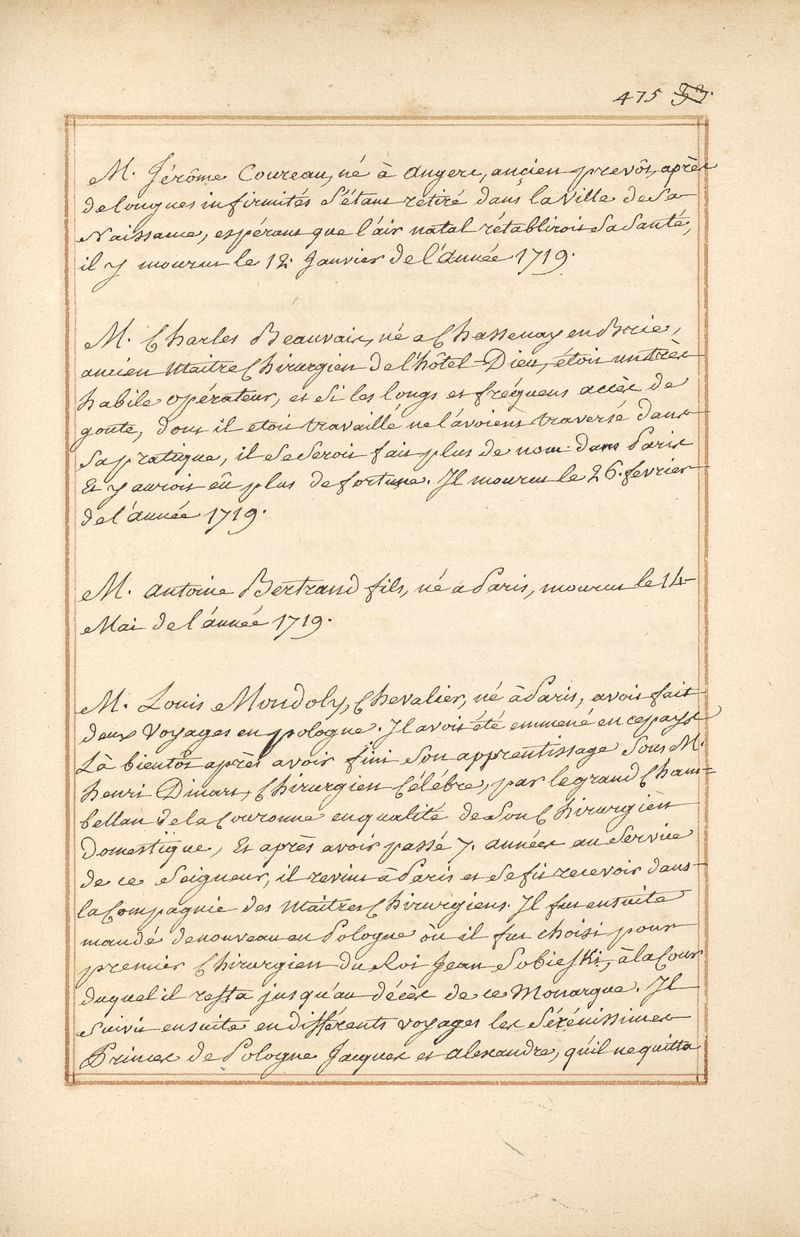 475
M. Jérôme Coureau, né à Angers, ancien prevôt, après
de longues infirmités s'étant rétiré dans la Ville de Sa
Naissance, espérant que l'air natal rétabliroit Sa Santé,
il y mourut le 12. Janvier de l'Année 1719.
M. Charles Beauvais, né a Chassenay en Brie,
ancien Maitre Chirurgien de l'hôtel-Dieu, étoit un très
habile opérateur, et Si les longs et fréquens accès de
goute, dont il etoit travaillé ne l'avoient traversé dans
Sa pratique, il Se Seroit fait plus de nom dans Paris
Et y auroit eû plus de fortune. Il mourut le 26. fevrier
de l'année 1719.
M. Antoine Bertrand fils, né a Paris, mourut le 14
Mai de l'année 1719.
M. Louis Mondoly, Chevalier, né à Paris, avoit fait
deux Voyages en pologne. Il avoit été emmené en ce pays
Là bientôt après avoir fini Son apprentissage Sous M.
henri Dinart, Chirurgien Célébre, par le grand Cham=
bellan de la Couronne en qualité de Son Chirurgien
Domestique, Et après avoir passé 7. années au Service
de ce Seigneur, il revint à Paris et Se fit recevoir dans
la Compagnie des Maitres Chirurgiens. Il fut ensuite
mandé de nouveau en Pologne où il fut choisi pour
premier Chirurgien du Roi Jean Sobieski, à la Cour
duquel il resta jusqu'au décès de ce Monarque. Il
Suivit ensuite en différents voyages les Sérénissimes
Princes de Pologne Jacques et Alexandre, qu'il ne quitta